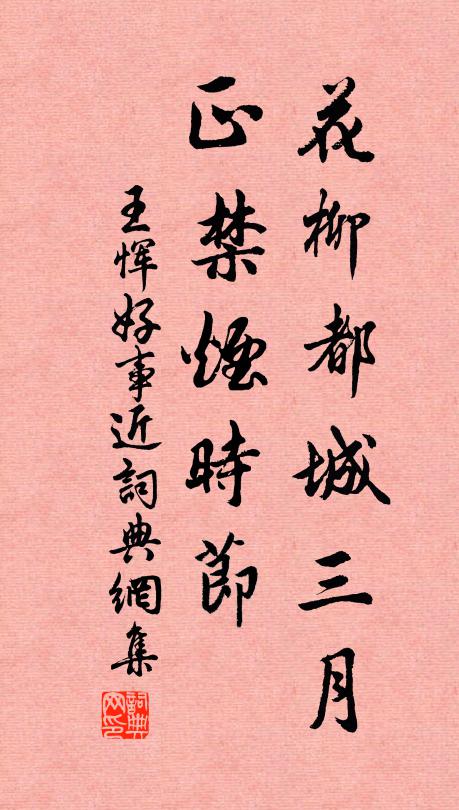 花柳都城三月
正禁煙時節
王惲好事近詞典網集
詞典網印